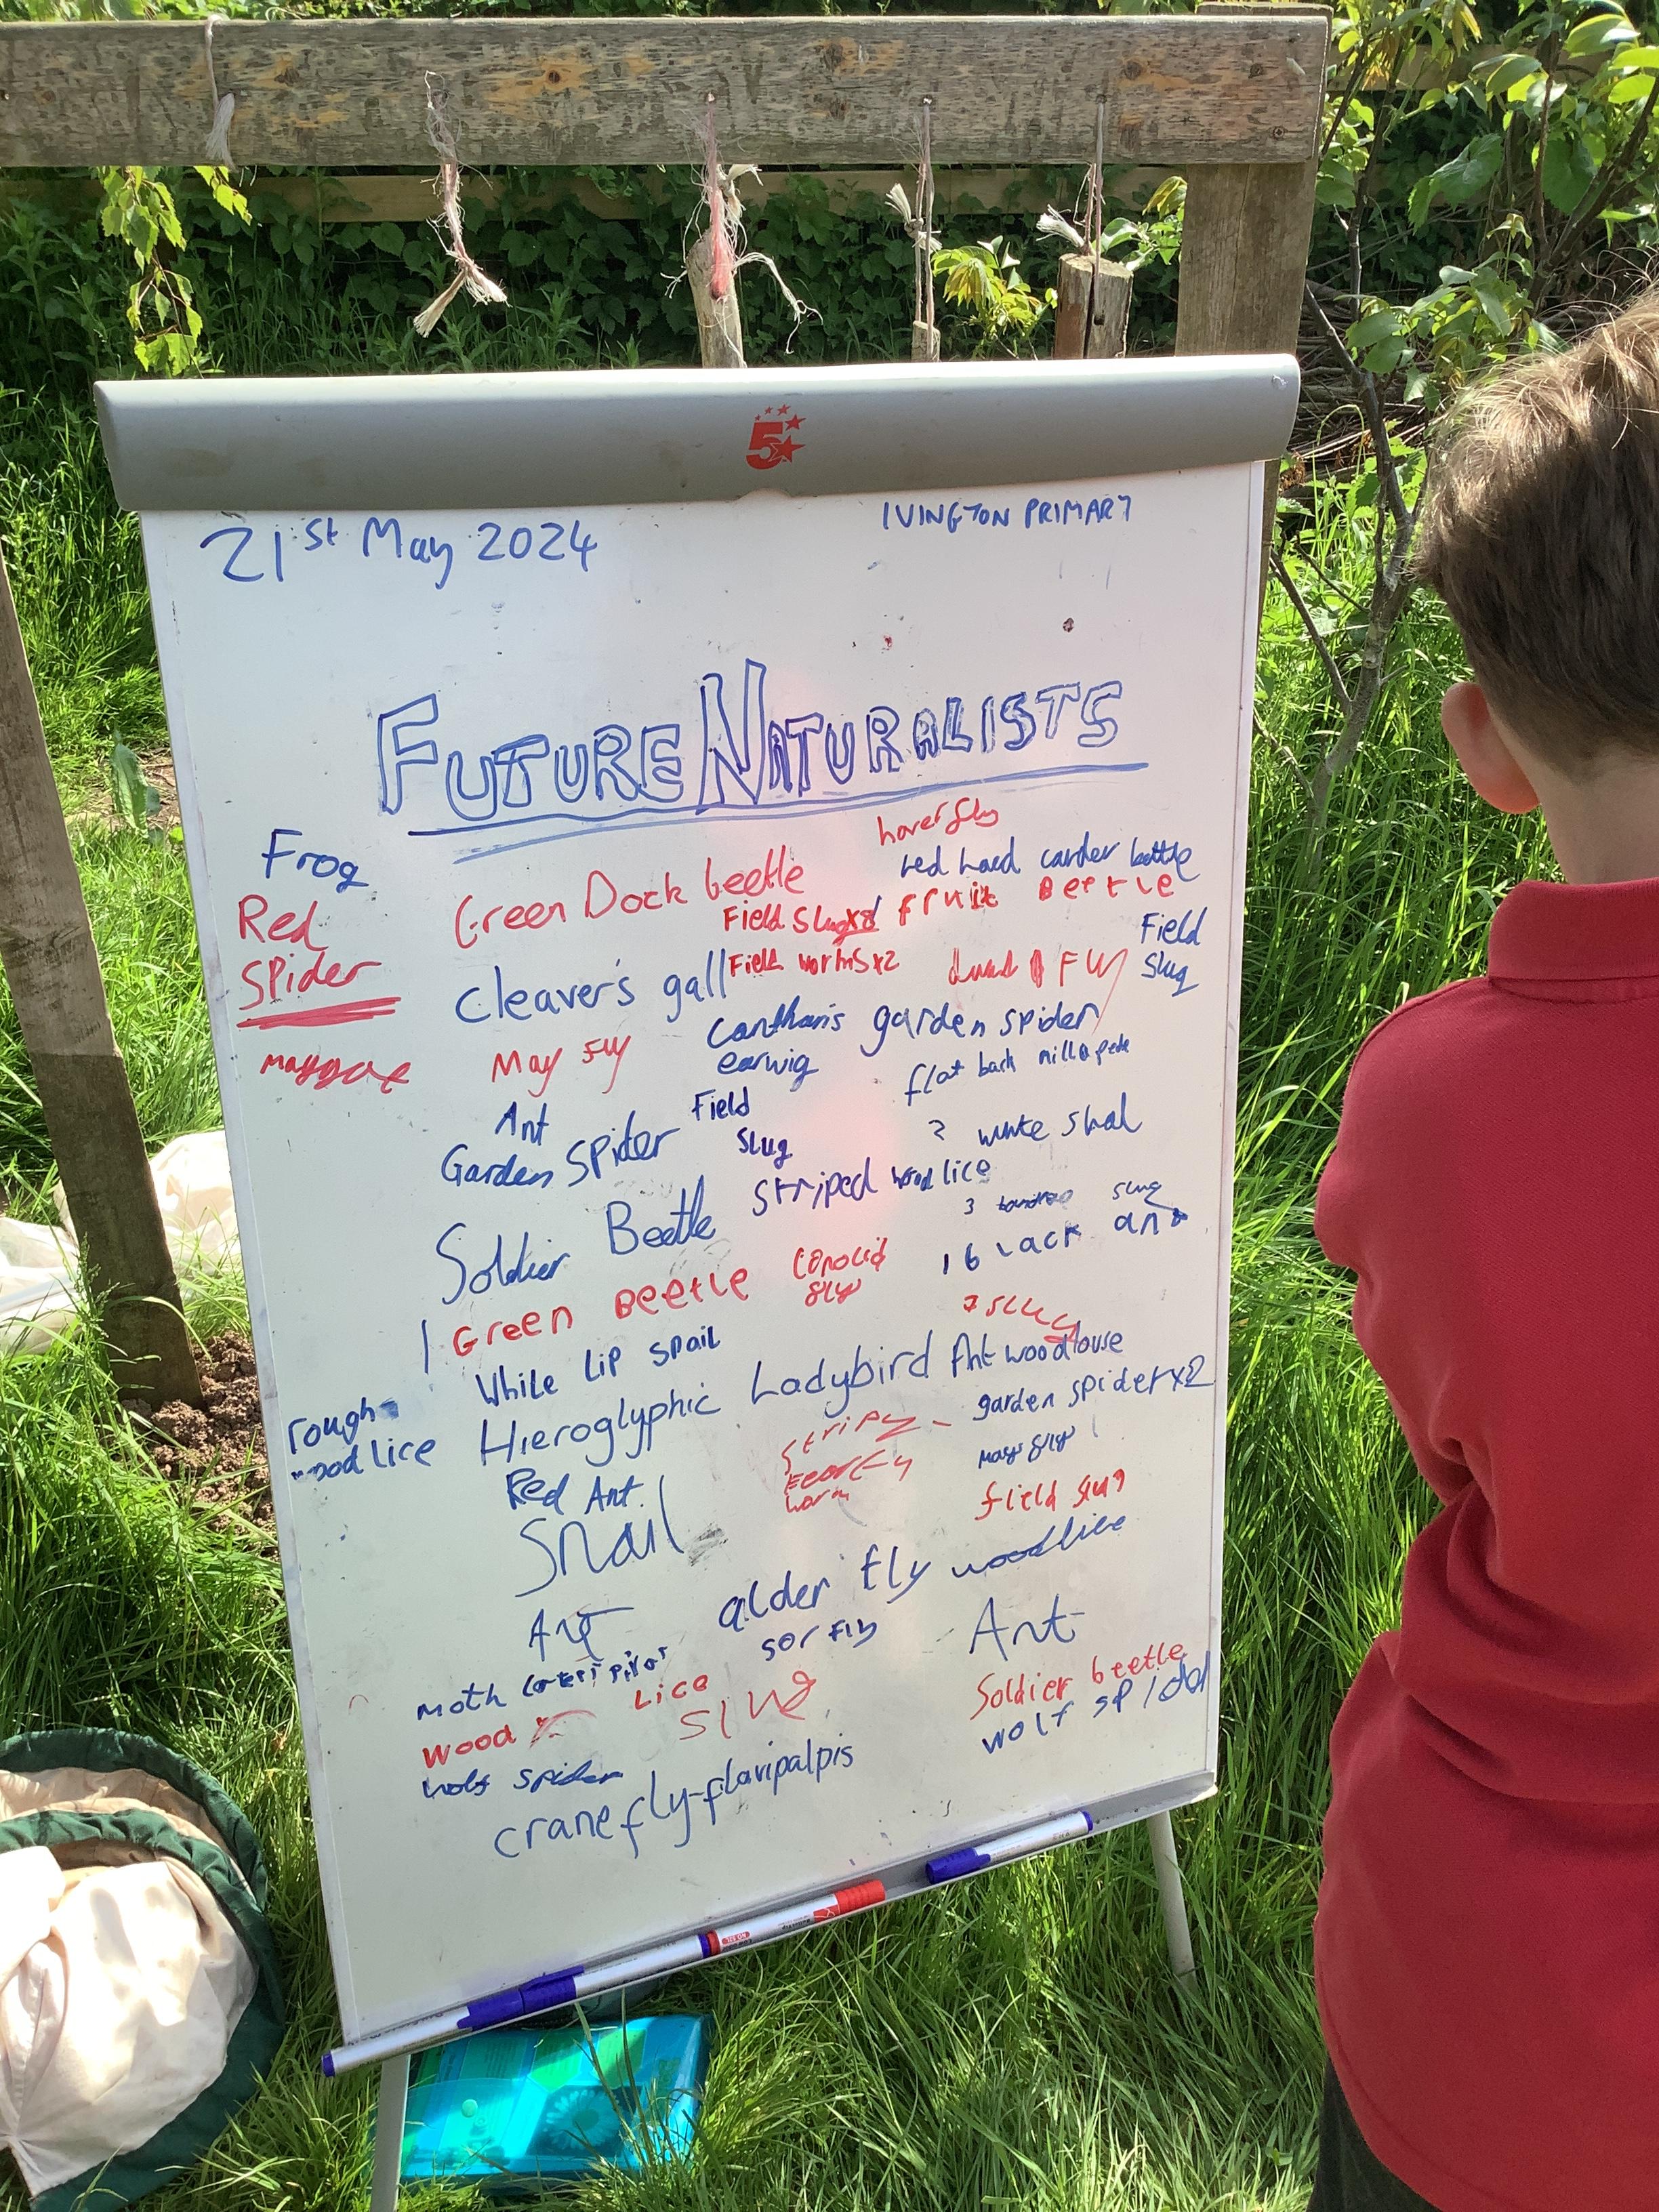 5
21st May 2024
IVINGTON PRIMARY
FUTURE NATURALISTS
Frog
Red
Spider
Green Dock beetle
hoverfly
red carder beetle
Field Slugx8
fruit Beetle
cleaver's gall
Field worms x2
Fly
Field
Slug
May Fly
Cantharis
earwig
garden spider
flat back
Ant
Garden Spider
Field
Slug
2 white
Soldier Beetle
Striped wood lice
3
slug
1 black ant
1 Green Beetle
fly
While Lip snail
Hieroglyphic Ladybird
Ant woodlouse
rough
wood lice
garden spider x2
Red Ant
Stripy
worm
may fly
field slug
Snail
alder fly
woodlice
Ant
Ant
moth
Wood Lice
Slug
Soldier beetle
wolf
wolf spider
crane fly-flavipalpis